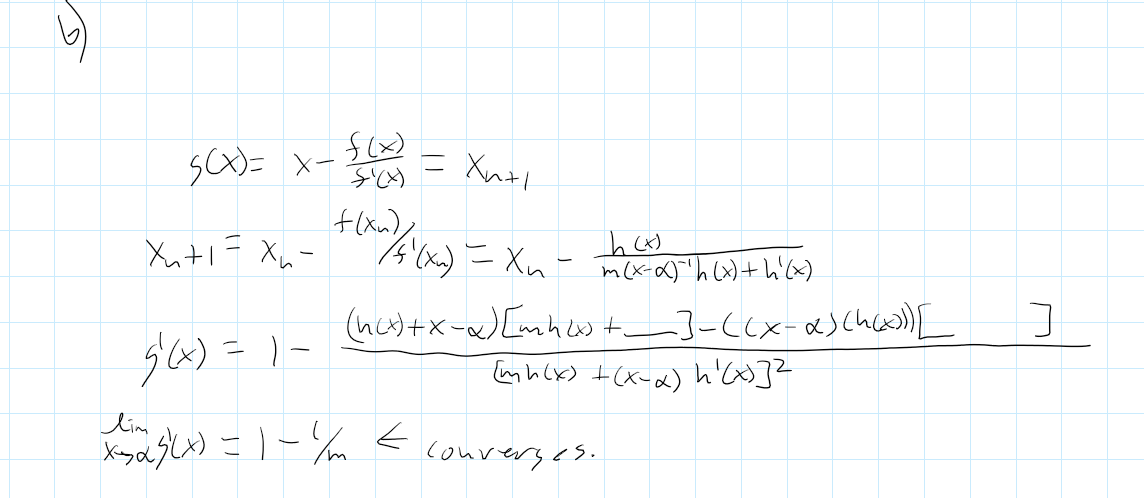 b)
g(x) = x - f(x)/f'(x) = x_{n+1}
x_{n+1} = x_n - f(x_n)/f'(x_n) = x_n - h(x)/(m(x-α)^{-1}h(x)+h'(x))
g'(x) = 1 - (h(x)+x-α)[mh(x)+___]-((x-α)(h(x)))[__ ] / [mh(x)+(x-α)h'(x)]^2
lim x→α g'(x) = 1 - 1/m ← converges.